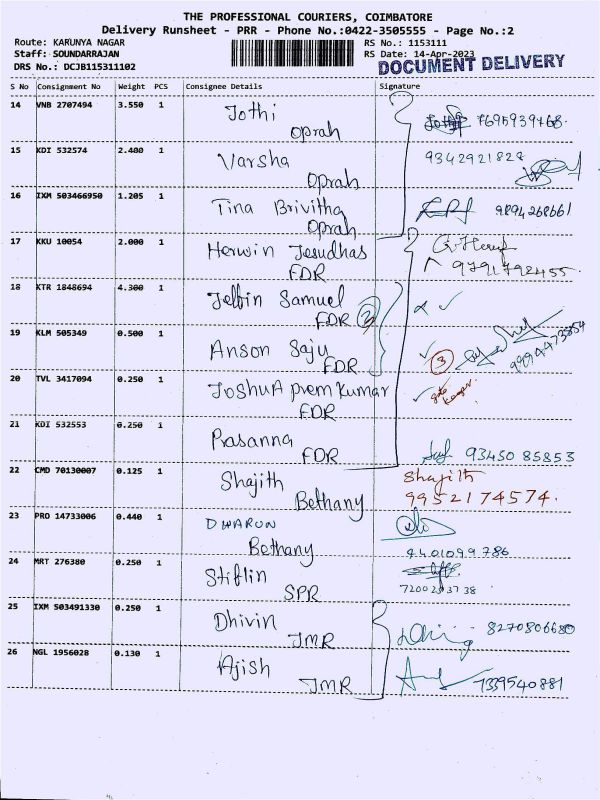 THE PROFESSIONAL COURIERS, COIMBATORE
Delivery Runsheet - PRR - Phone No.:0422-3505555 - Page No.:2
Route: KARUNYA NAGAR RS No.: 1153111
Staff: SOUNDARRAJAN RS Date: 14-Apr-2023
DRS No.: DCJB115311102 DOCUMENT DELIVERY
S No Consignment No Weight PCS Consignee Details Signature
14 VNB 2707494 3.550 1 Jothi
Oprah
15 KDI 532574 2.400 1 Varsha 9342921828
Oprah
16 IXM 503466950 1.205 1 Tina Brivitha 9894268661
Oprah
17 KKU 10054 2.000 1 Herwin Jesudhas
FDR 9791792455
18 KTR 1848694 4.300 1 Jelbin Samuel
FDR
19 KLM 505349 0.500 1 Anson Saju 3
FDR
20 TVL 3417094 0.250 1 Joshua prem Kumar
FDR
21 KDI 532553 0.250 1 Prasanna
FDR 93450 85853
22 CMD 70130007 0.125 1 Shajith Shajith
Bethany 9952174574.
23 PRO 14733006 0.440 1 DHARUN
Bethany
24 MRT 276380 0.250 1 Stiflin
SPR
25 IXM 503491330 0.250 1 Dhivin 8270806680
JMR
26 NGL 1956028 0.130 1 Ajish
JMR 7339540881